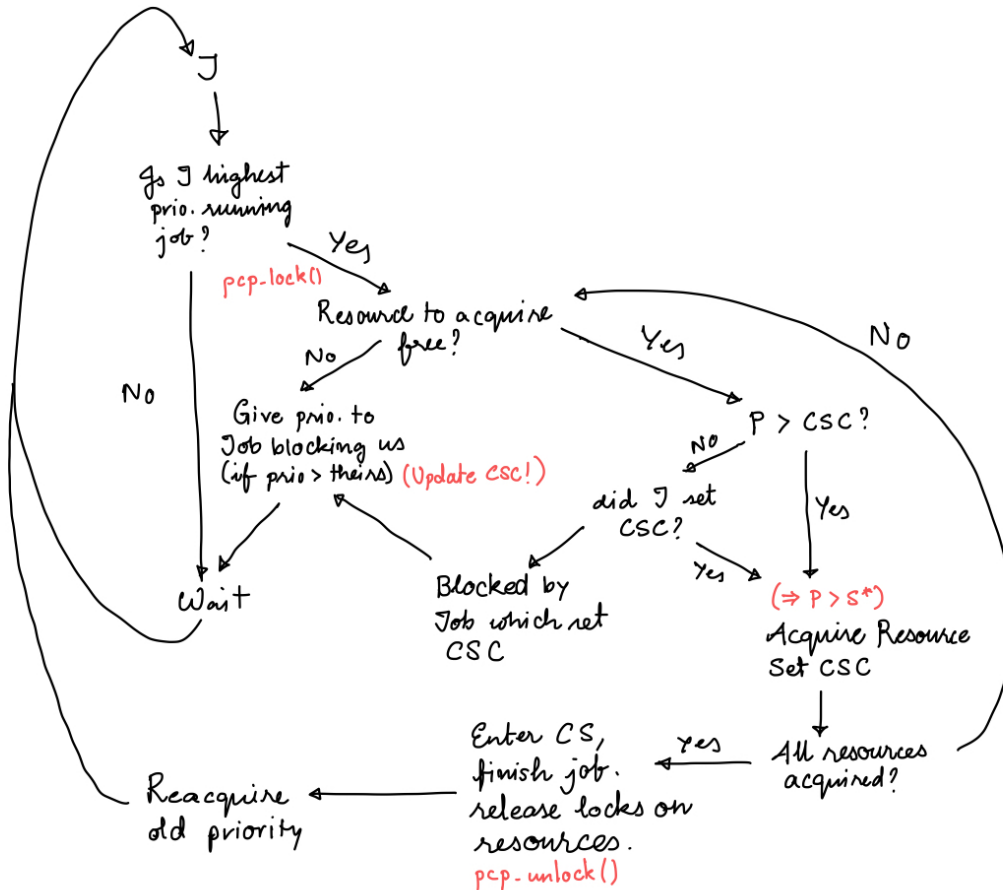 J
Is J highest
prio. running
job?
Yes
pcp-lock()
Resource to acquire
free?
No
Yes
No
No
Give prio. to
Job blocking us
(if prio > theirs) (Update CSC!)
P > CSC?
No
did J set
CSC?
Yes
Yes
Wait
Blocked by
Job which set
CSC
(⇒ P > S*)
Acquire Resource
Set CSC
All resources
acquired?
Yes
Enter CS,
finish job.
release locks on
resources.
pcp-unlock()
Reacquire
old priority